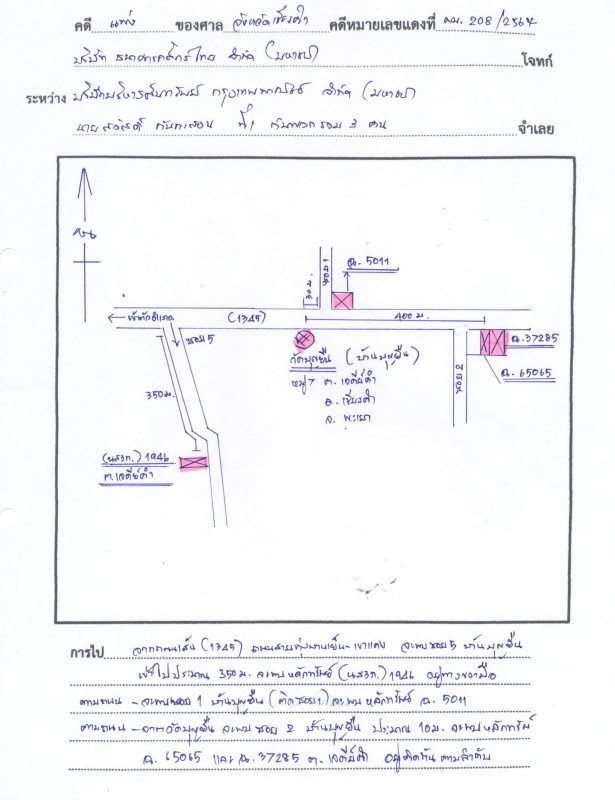 คดี แพ่ง ของศาล จังหวัดเชียงคำ คดีหมายเลขแดงที่ ผบ. 208/2564
บริษัท ธนาคารกสิกรไทย จำกัด (มหาชน) โจทก์
ระหว่าง บริษัทบริหารสินทรัพย์ กรุงเทพพาณิชย์ จำกัด (มหาชน)
นายสวัสดิ์ ที่ 1 กับพวกรวม 3 คน จำเลย
ฉ. 5011
30 ม.
ซอย 1
(1345)
400 ม.
ซอย 5
350 ม.
วัดบุญยืน (บ้านบุญยืน)
หมู่ 7 ต. เจดีย์คำ
อ. เชียงคำ
จ. พะเยา
ซอย 2
ฉ. 37285
ฉ. 65065
(นส3ก.) 1946
ต. เจดีย์คำ
การไป จากถนนเส้น (1345) จะพบซอย 5 บ้านบุญยืน
เข้าไปประมาณ 350 ม. จะพบหลักทรัพย์ (นส3ก.) 1946 อยู่ทางขวามือ
ตามถนน - จะพบซอย 1 บ้านบุญยืน (ติดซอย 1) จะพบหลักทรัพย์ ฉ. 5011
ตามถนน - จากวัดบุญยืน จะพบซอย 2 บ้านบุญยืน ประมาณ 10 ม. จะพบหลักทรัพย์
ฉ. 65065 และ ฉ. 37285 ต. เจดีย์คำ อยู่ติดกันตามลำดับ